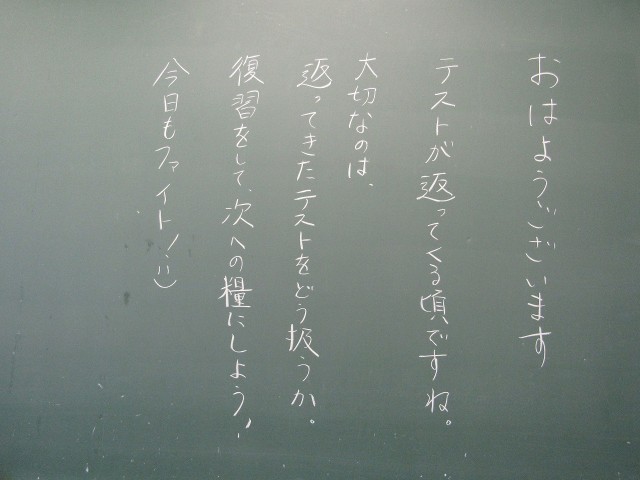 おはようございます
テストが返ってくる頃ですね。
大切なのは、
返ってきたテストをどう扱うか。
復習をして、次への糧にしよう！
今日もファイト！:)